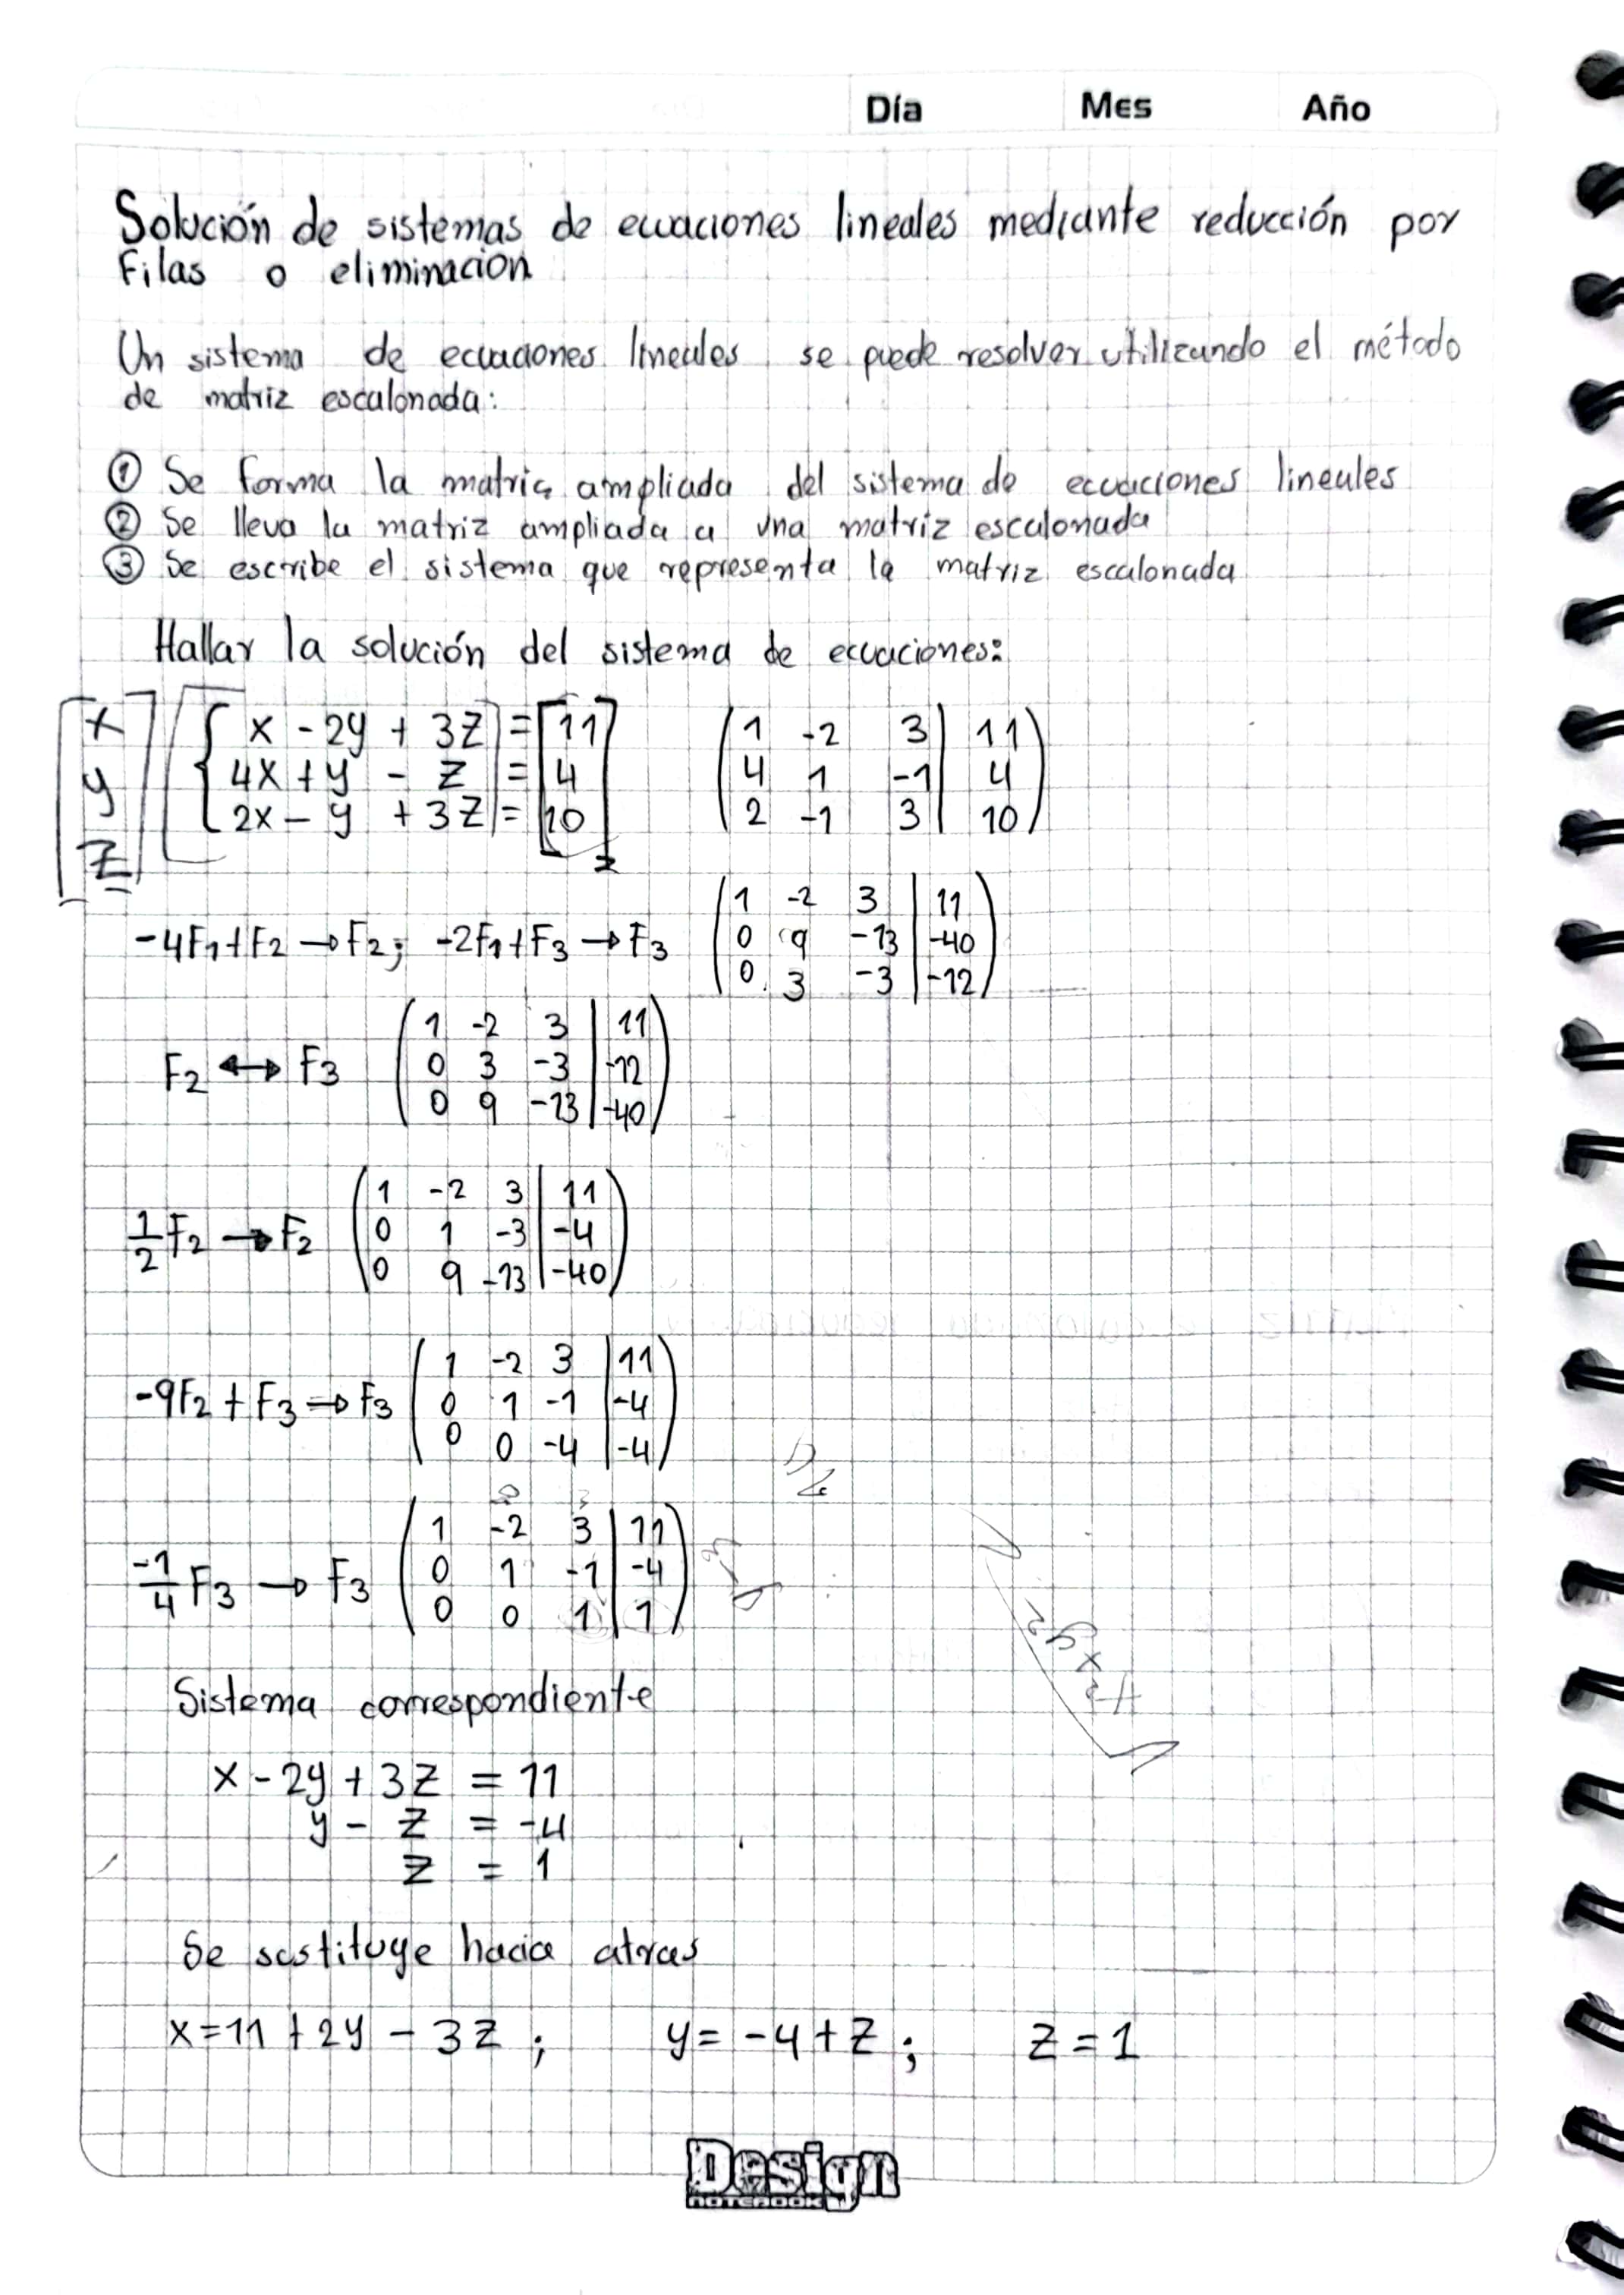 Día Mes Año
Solución de sistemas de ecuaciones lineales mediante reducción por
Filas o eliminacion
Un sistema de ecuaciones lineales se puede resolver utilizando el método
de matriz escalonada:
① Se forma la matriz ampliada del sistema de ecuaciones lineales
② Se lleva la matriz ampliada a una matriz escalonada
③ Se escribe el sistema que representa la matriz escalonada
Hallar la solución del sistema de ecuaciones:
x x - 2y + 3z = 11 1 -2 3 | 11
y 4x + y - z = 4 4 1 -1 | 4
z 2x - y + 3z = 10 2 -1 3 | 10
1 -2 3 | 11
-4F1 + F2 → F2; -2F1 + F3 → F3 0 9 -13 | -40
0 3 -3 | -12
1 -2 3 | 11
F2 ↔ F3 0 3 -3 | -12
0 9 -13 | -40
1 -2 3 | 11
1/2 F2 → F2 0 1 -3 | -4
0 9 -13 | -40
1 -2 3 | 11
-9F2 + F3 → F3 0 1 -1 | -4
0 0 -4 | -4
1 -2 3 | 11
-1/4 F3 → F3 0 1 -1 | -4
0 0 1 | 1
Sistema correspondiente
x - 2y + 3z = 11
y - z = -4
z = 1
Se sustituye hacia atras
x = 11 + 2y - 3z ; y = -4 + z ; z = 1
Design
NOTEBOOK